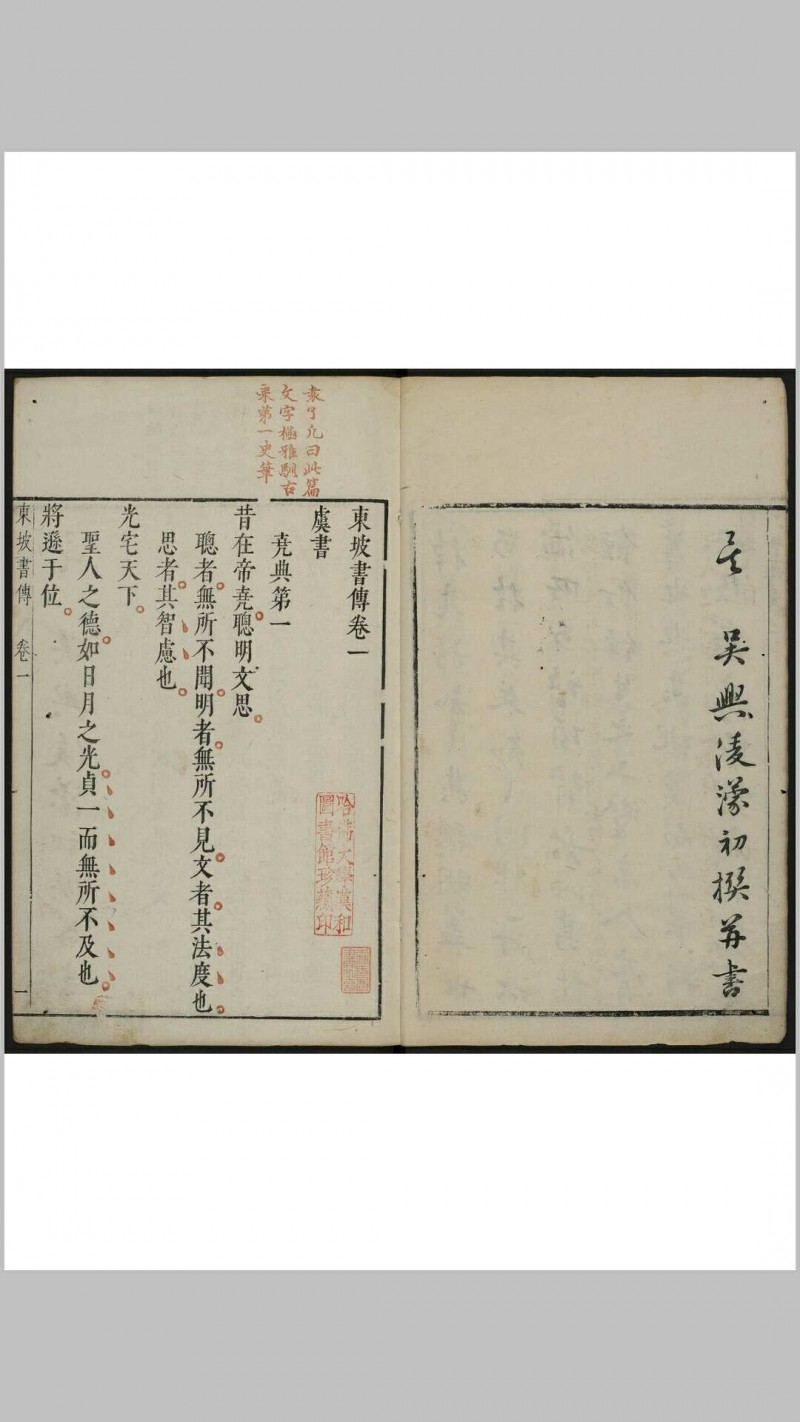 吳興淩濛初撰并書
東坡書傳卷一
虞書
堯典第一
昔在帝堯聰明文思
聰者無所不聞明者無所不見文者其法度也
思者其智慮也
光宅天下
聖人之德如日月之光貞一而無所不及也
將遜于位
東坡書傳 卷一 一
袁了凡曰此篇
文字極雅馴古
來第一史筆
哈佛大學漢和
圖書館珍藏印